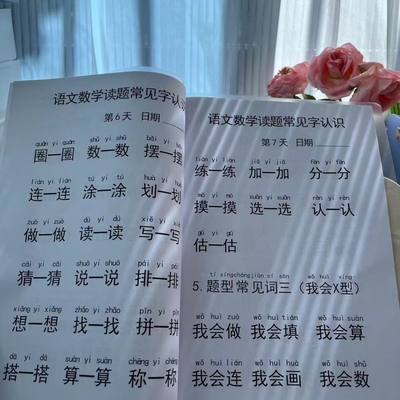 语文数学读题常见字认识
第6天 日期
quān yi quān shǔ yi shǔ bǎi yi bǎi
圈一圈 数一数 摆一摆
lián yi lián tú yi tú huà yi huà
连一连 涂一涂 划一划
zuò yi zuò dú yi dú xiě yi xiě
做一做 读一读 写一写
cāi yi cāi shuō yi shuō pái yi pái
猜一猜 说一说 排一排
xiǎng yi xiǎng zhǎo yi zhǎo pīn yi pīn
想一想 找一找 拼一拼
dā yi dā suàn yi suàn chēng yi chēng
搭一搭 算一算 称一称
语文数学读题常见字认识
第7天 日期
liàn yi liàn jiā yi jiā fēn yi fēn
练一练 加一加 分一分
mō yi mō xuǎn yi xuǎn rèn yi rèn
摸一摸 选一选 认一认
gū yi gū
估一估
tí xíng cháng jiàn cí sān wǒ huì xíng
5.题型常见词三（我会X型）
wǒ huì zuò wǒ huì tián wǒ huì suàn
我会做 我会填 我会算
wǒ huì lián wǒ huì huà wǒ huì shǔ
我会连 我会画 我会数